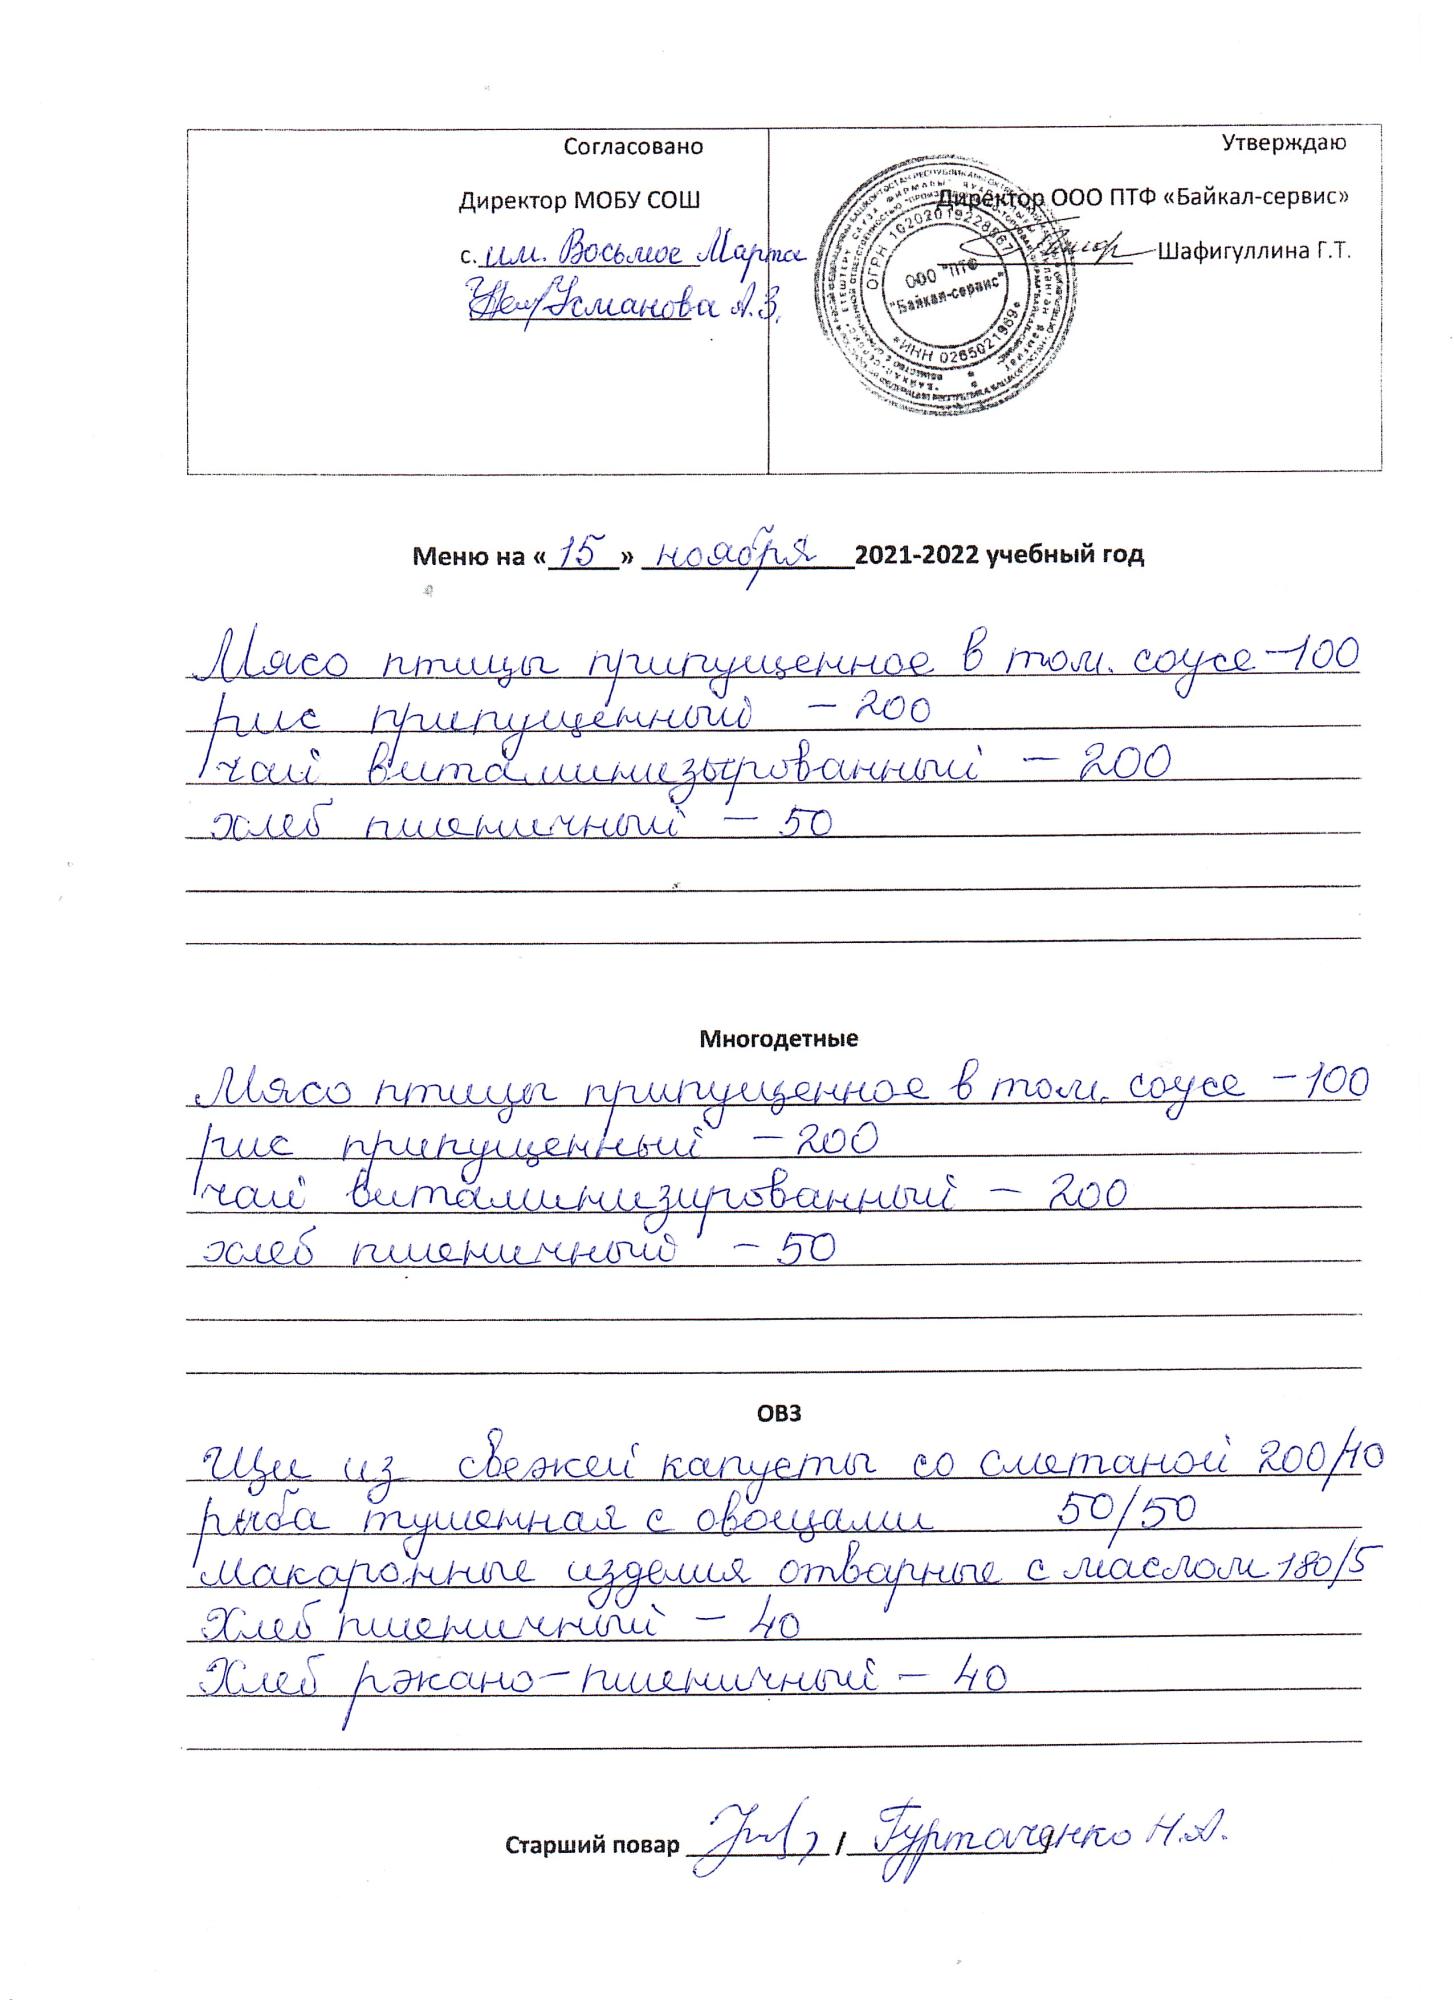 Согласовано
Директор МОБУ СОШ
с. им. Восьмое Марта
Усманова А.З.
Утверждаю
Директор ООО ПТФ «Байкал-сервис»
Шафигуллина Г.Т.
ОГРН 1020201922867
ООО "ПТФ
"Байкал-сервис"
ИНН 0265021969
Меню на « 15 » ноября 2021-2022 учебный год
Мясо птицы припущенное в том. соусе - 100
рис припущенный - 200
чай витаминизырованный - 200
хлеб пшеничный - 50
Многодетные
Мясо птицы припущенное в том. соусе - 100
рис припущенный - 200
чай витаминизированный - 200
хлеб пшеничный - 50
ОВЗ
Щи из свежей капусты со сметаной 200/10
рыба тушенная с овощами 50/50
макаронные изделия отварные с маслом 180/5
Хлеб пшеничный - 40
Хлеб ржано-пшеничный - 40
Старший повар / Гуртаченко Н.А. /